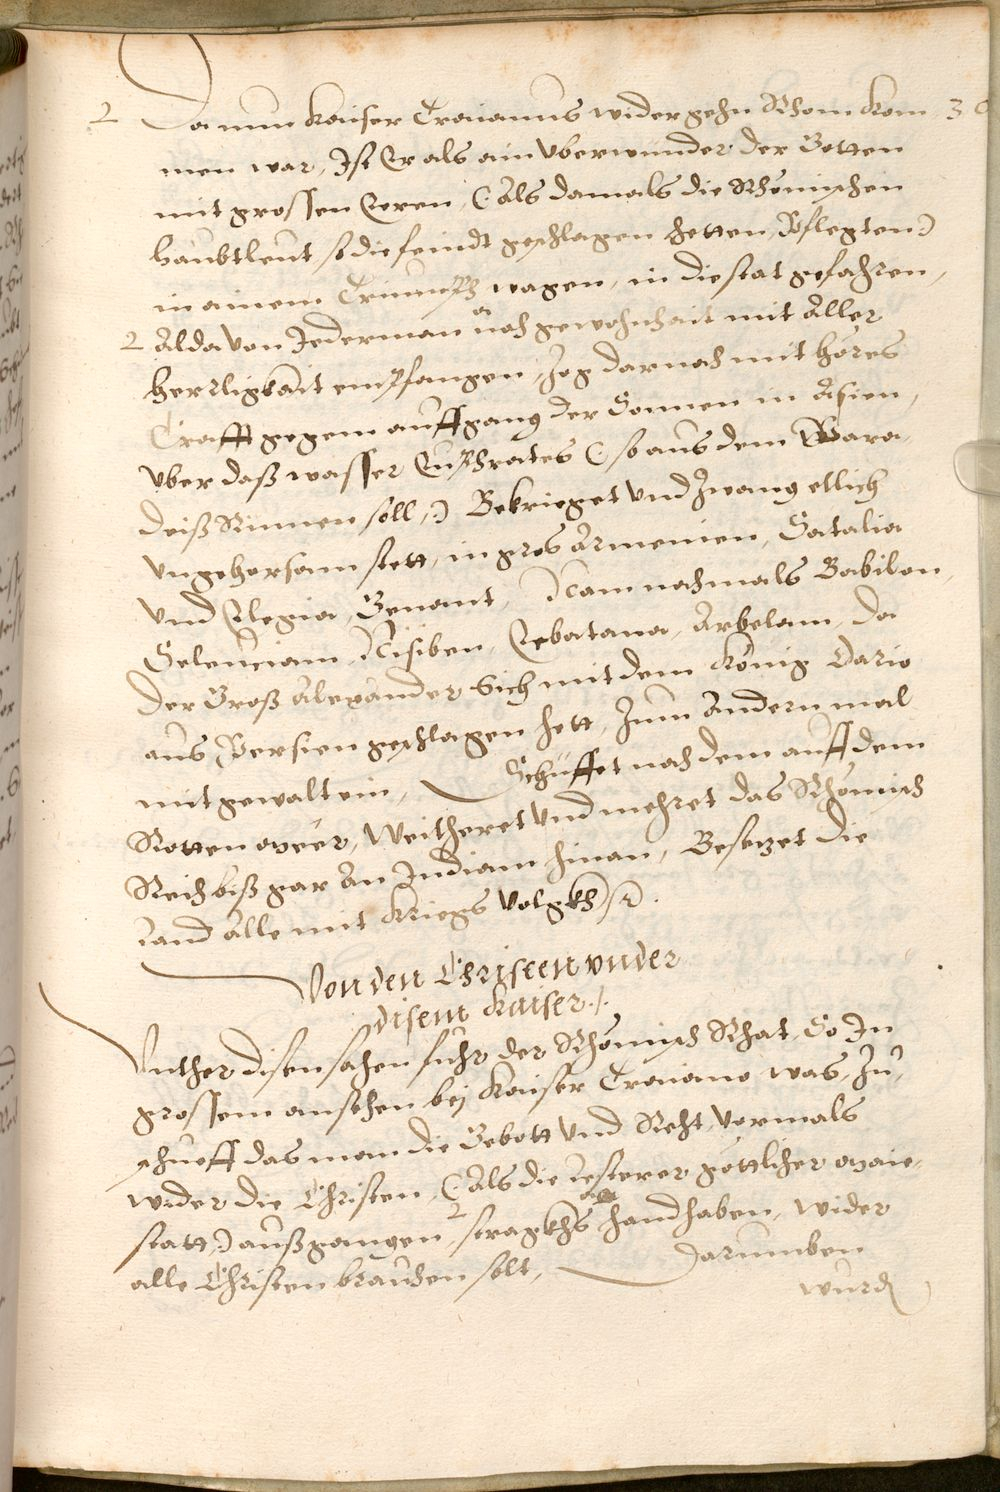 2 Da nun Kaiser Traianus wider gehn Rhom kom 30
men war, Ist Er als ain Vberwunder der Gotten
mit grossen Eeren, (: Als damals die Rhömischen
haubtleut so die feindt geschlagen hetten, Pflegten:)
in ainem Triumph wagen, in die stat gefahren,
2 Alda von Jederman nach gewohnhait mit Aller
herrligkait empfangen, Zog darnach mit höres
Crafft gegem auffgang der Sonnen in Asien,
vber daß wasser Euphrates (: so aus dem Para,
deiß Rinnen soll,:) Bekrieget vnd Zwang etlich
vngehorsam stett, in gros Armenien, Satalia
vnd Elegia, Genant, Nam nachmals Babilon,
Seleuciam, Nisiben, Ecbatana, Arbelam, da
der Groß Alexander Sich mit dem König Dario
aus Persien geschlagen hett, Zum Andern mal
mit gewalt ein, Schiffet nach dem auff dem
Rotten Meer, Weitheret vnd mehret das Rhömisch
Reich biß gar An Indiam hinan, Besetzet die
Land Alle mit Kriegs volgkh
Von den Christen vnder
disem Kaiser./.
Vnther disen sachen fuhr der Rhömisch Rhat, So In
grossem ansehen bej Kaiser Traiano was, Zu,
schueff das man die Gebott vnd Recht, vormals
wider die Christen, (: Als die Lesterer göttlicher Maie-
statt,:) außgangen, stragkhs handhaben, wider
alle Christen brauchen solt, Darumben
wurd